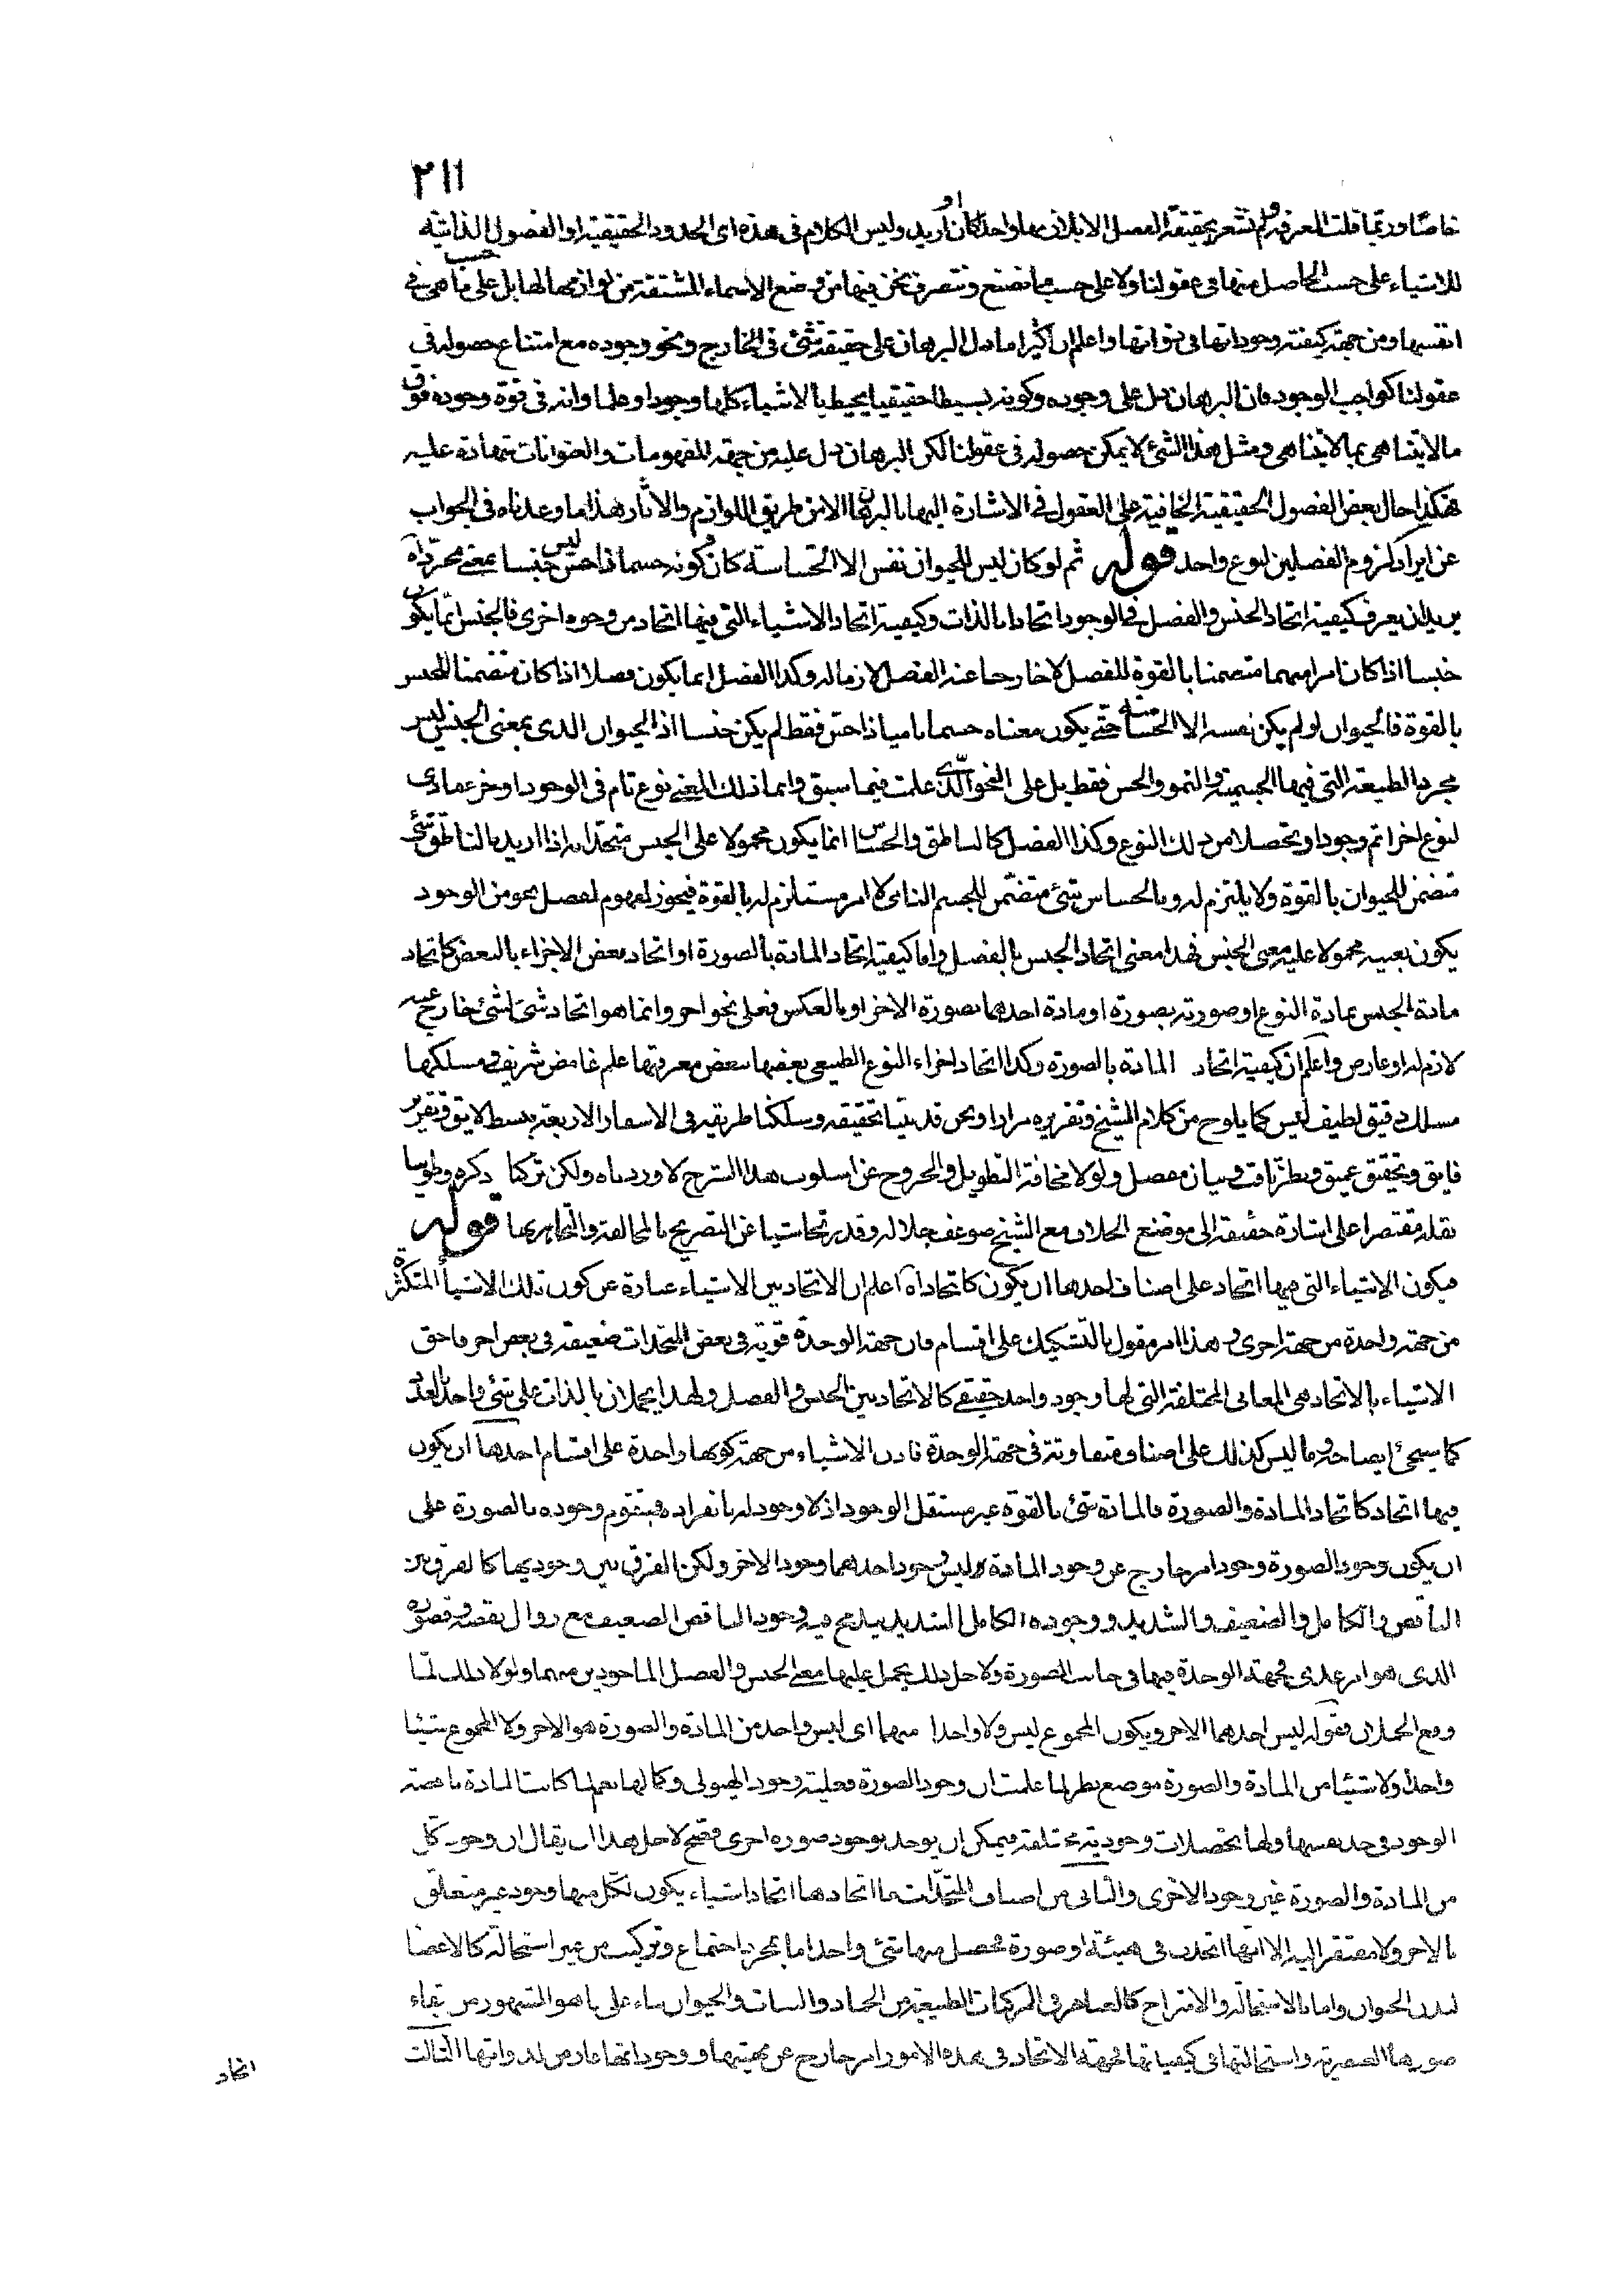 ٢١١
خاصا وربما قلت المعرفة ولم نشعر بحقيقة الفصل الا بلازمها واحدا كان او أزيد وليس الكلام في هذه اى الحدود الحقيقية او الفصول الذاتية
للاشياء على حسب الحاصل منها في عقولنا ولا على حسب ما نصنع ونتصرف نحن فيها من وضع الاسماء المشتقة من لوازمها لها بل على حسب ما هى في
انفسها ومن جهة كيفية وجوداتها في ذواتها واعلم ان كثيرا ما دل البرهان على حقيقة شئ في الخارج ونحو وجوده مع امتناع حصوله في
عقولنا كواجب الوجود فان البرهان دل على وجوده وكونه بسيطا حقيقيا يحيط بالاشياء كلها وجودا وعلما وانه في قوة وجوده فوق
ما لا يتناهى بما لا يتناهى ومثل هذا الشئ لا يمكن حصوله في عقولنا لكن البرهان دل عليه من جهة المفهومات والعنوانات شهادة عليه
هكذا حال بعض الفصول الحقيقية الخافية على العقول في الاشارة اليها بالبرهان الا من طريق اللوازم والاثار هذا ما وعدناه في الجواب
عن ايراد لزوم الفصلين لنوع واحد قوله ثم لو كان ليس للحيوان نفس الا الحساسة كان كونه جسما ذا حس ليس جنسا بمعنى مجرد اه
يريد ان يعرف كيفية اتحاد الجنس والفصل في الوجود اتحادا بالذات وكيفية اتحاد الاشياء التى فيها اتحاد من وجوه اخرى فالجنس انما يكون
جنسا اذا كان امرا مبهما متضمنا بالقوة للفصل لا خارجا عنه الفصل لازما له وكذا الفصل انما يكون فصلا اذا كان متضمنا للجنس
بالقوة فالحيوان لو لم يكن نفسه الا الحساسة حتى يكون معناه جسما ناميا ذا حس فقط لم يكن جنسا اذ الحيوان الذى بمعنى الجنس ليس
مجرد الطبيعة التى فيها الجسمية والنمو والحس فقط بل على النحو الذى علمت فيما سبق وانما ذلك المعنى نوع تام في الوجود او جزء مادى
لنوع اخر اتم وجودا وتحصلا من ذلك النوع وكذا الفصل كالناطق والحساس انما يكون محمولا على الجنس متحدا به اذا اريد بالناطق شئ
متضمن للحيوان بالقوة ولا يلتزم له وبالحساس شئ متضمن للجسم النامى لا امر مستلزم له بالقوة فيجوز لمفهوم الفصل نحو من الوجود
يكون بعينه محمولا عليه معنى الجنس فهذا معنى اتحاد الجنس بالفصل واما كيفية اتحاد المادة بالصورة او اتحاد بعض الاجزاء بالبعض كاتحاد
مادة الجنس بمادة النوع او صورته بصورة او مادة احدهما بصورة الاخر او بالعكس فعلى نحو اخر وانما هو اتحاد شئ بشئ خارج عنه
لازم له او عارض واعلم ان كيفية اتحاد المادة بالصورة وكذا اتحاد اجزاء النوع الطبيعى بعضها ببعض معرفتها علم غامض شريف مسلكها
مسلك دقيق لطيف ليس كما يلوح من كلام الشيخ وتقريره مرارا ونحن قد بينا تحقيقه وسلكنا طريقه في الاسفار الاربعة ببسط لايق وتقرير
فايق وتحقيق عميق ونظر ثاقب وبيان مفصل ولولا مخافة التطويل والخروج عن اسلوب هذا الشرح لاوردناه ولكن تركنا ذكره وطوينا
نقله مقتصرا على اشارة خفيفة الى موضع الخلاف مع الشيخ ضوعف جلاله وقدره تحاشيا عن التصريح بالمخالفة والتجاهر بها قوله
فيكون الاشياء التى فيها اتحاد على اصناف احدها ان يكون كاتحاد اه اعلم ان الاتحاد بين الاشياء عبارة عن كون تلك الاشياء المتكثرة
من جهة واحدة من جهة اخرى وهذا امر مقول بالتشكيك على اقسام فان جهة الوحدة قوية في بعض المتحدات ضعيفة في بعض اخر فاحق
الاشياء بالاتحاد هى المعانى المختلفة التى لها وجود واحد حقيقى كالاتحاد بين الجنس والفصل ولهذا يحملان بالذات على شئ واحد بالعدد
كما سيجئ ايضاحه وما ليس كذلك على اصناف متفاوتة في جهة الوحدة فاذن الاشياء من جهة كونها واحدة على اقسام احدها ان يكون
فيها اتحاد كاتحاد المادة والصورة فالمادة شئ بالقوة غير مستقل الوجود اذ لا وجود له بانفراده فيتقوم وجوده بالصورة على
ان يكون وجود الصورة وجود امر خارج عن وجود المادة وليس وجود احدهما وجود الاخر ولكن الفرق بين وجوديهما كالفرق بين
الناقص والكامل والضعيف والشديد ووجوده الكامل الشديد يندمج فيه وجود الناقص الضعيف مع زوال نقصه وقصوره
الذى هو امر عدمى فجهة الوحدة فيها في جانب الصورة ولاجل ذلك يحمل عليها معنى الجنس والفصل الماخوذين منهما ولولا ذلك لما
وقع الحملان وقوله ليس احدهما الاخر ويكون المجموع ليس ولا واحدا منهما اى ليس واحد من المادة والصورة هو الاخر ولا المجموع شيئا
واحدا ولا شيئا من المادة والصورة موضع نظر لما علمت ان وجود الصورة فعلية وجود الهيولى وكمالها نعم لما كانت المادة ناقصة
الوجود في حد نفسها ولها تحصلات وجودية مختلفة فيمكن ان يوجد بوجود صورة اخرى فصح لاجل هذا ان يقال ان وجود كل
من المادة والصورة غير وجود الاخرى والثانى من اصناف المتحدات ما اتحادها اتحاد اشياء يكون لكل منها وجود غير متعلق
بالاخر ولا مفتقر اليه الا انها اتحدت في هيئة او صورة فحصل منها شئ واحد اما بمجرد اجتماع وتركيب من غير استحالة كالاعضا
لبدن الحيوان واما بالاستحالة والامتزاج كالعناصر في المركبات الطبيعية من الجماد والنبات والحيوان بناء على ما هو المشهور من بقاء
صورها العنصرية واستحالتها في كيفياتها فجهة الاتحاد في هذه الامور امر خارج عن مهيتها ووجوداتها عارض لذواتها الثالث
اتحاد